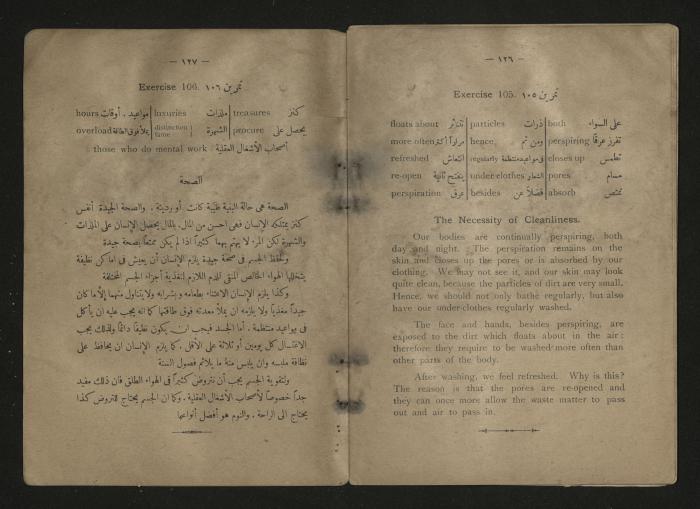 — ١٢٦ —
Exercise 105. تمرين ١٠٥
floats about | particles ذرات | both على السواء
more often مراراً أكثر | hence, ومن ثم | perspiring تفرز عرقاً
refreshed انتعاش | regularly فى مواعيد منتظمة | closes up تطمس
re-open يفتح ثانية | under-clothes | pores مسام
perspiration عرق | besides فضلاً عن | absorb تمتص
The Necessity of Cleanliness.
Our bodies are continually perspiring, both
day and night. The perspiration remains on the
skin and closes up the pores or is absorbed by our
clothing. We may not see it, and our skin may look
quite clean, because the particles of dirt are very small.
Hence, we should not only bathe regularly, but also
have our under-clothes regularly washed.
The face and hands, besides perspiring, are
exposed to the dirt which floats about in the air :
therefore they require to be washed more often than
other parts of the body.
After washing, we feel refreshed. Why is this?
The reason is that the pores are re-opened and
they can once more allow the waste matter to pass
out and air to pass in.
— ١٢٧ —
Exercise 106. تمرين ١٠٦
hours مواعيد . أوقات | luxuries ملذات | treasures كنز
overload يملأ فوق الطاقة | distinction fame الشهرة | procure يحصل على
those who do mental work أصحاب الأشغال العقلية
الصحة
الصحة هى حالة البنية طيبة كانت أو رديئة . والصحة الجيدة أنفس
كنز يمتلكه الإنسان فهى احسن من المال. بالمال يحصل الإنسان على الملذات
والشهرة لكن المرء لا يهتم بهما كثيراً اذا لم يكن ممتعاً بصحة جيدة
ولحفظ الجسم فى صحة جيدة يلزم الإنسان أن يعيش فى اماكن نظيفة
يتخللها الهواء الخالص المنقى للدم اللازم لتغذية أجزاء الجسم المختلفة
وكذا يلزم الإنسان الاعتناء بطعامه وبشرابه ولا يتناول منهما إلا ما كان
جيداً مغذياً ولا يلزمه ان يملأ معدته فوق طاقتها كما انه يجب عليه ان يأكل
فى مواعيد منتظمة . أما الجسد فيجب ان يكون نظيفاً دائماً ولذلك يجب
الاغتسال كل يومين أو ثلاثة على الأقل . كما يلزم الإنسان ان يحافظ على
نظافة ملبسه وان يلبس منه ما يلائم فصول السنة
ولتقوية الجسم يجب أن نتروض كثيراً فى الهواء الطلق فان ذلك مفيد
جداً خصوصاً لأصحاب الأشغال العقلية . وكما ان الجسم يحتاج للتروض كذا
يحتاج الى الراحة . والنوم هو أفضل أنواعها